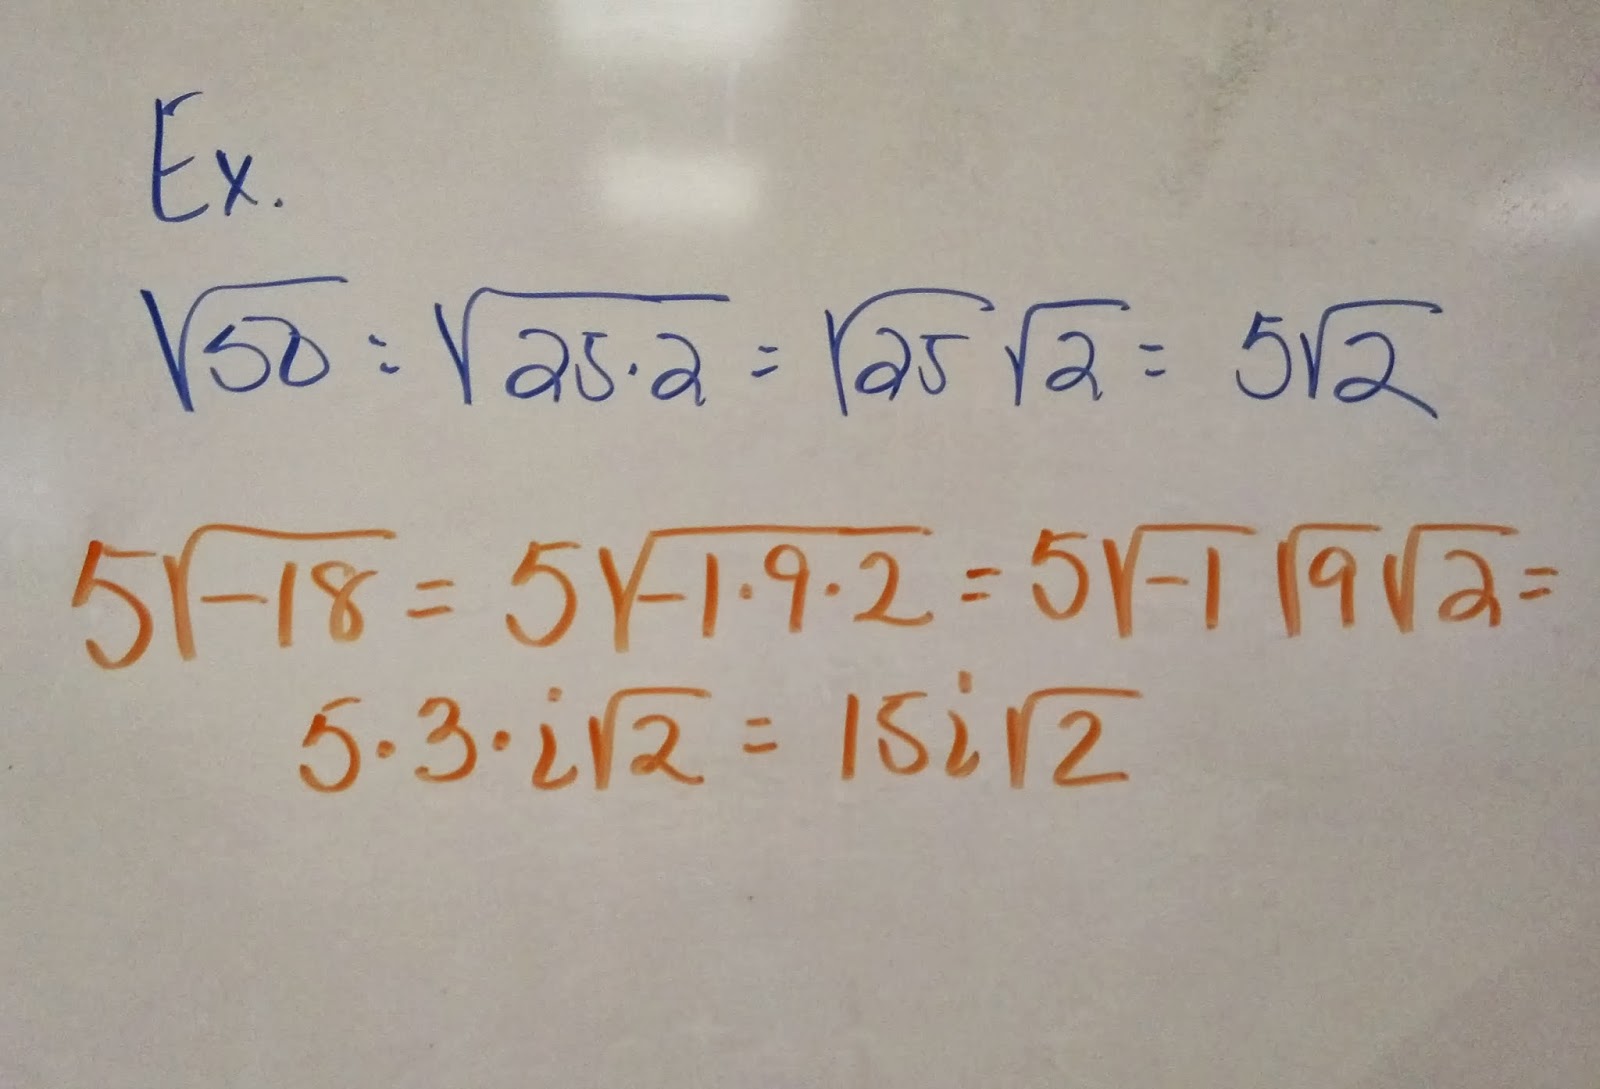 Ex.
√50 = √25·2 = √25 √2 = 5√2
5√-18 = 5√-1·9·2 = 5√-1 √9 √2 =
5·3·i√2 = 15i√2